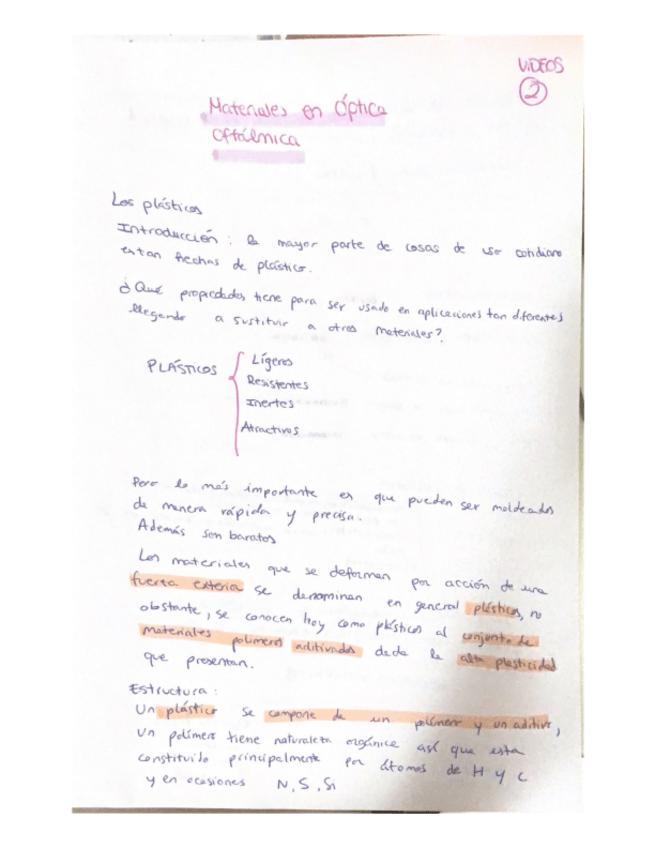 VIDEOS
2
Materiales en Óptica
Oftálmica
Los plásticos
Introducción: la mayor parte de cosas de uso cotidiano
estan hechas de plástico.
¿Qué propiedades tiene para ser usado en aplicaciones tan diferentes
llegando a sustituir a otros materiales?
PLÁSTICOS
Lígeros
Resistentes
Inertes
Atractivos
Pero lo más importante es que pueden ser moldeados
de manera rápida y precisa.
Además son baratos
Los materiales que se deforman por acción de una
fuerza exterior se denominan en general plásticos, no
obstante, se conocen hoy como plásticos al conjunto de
materiales polimeros aditivados dada la alta plasticidad
que presentan.
Estructura:
Un plástico se compone de un polímero y un aditivo,
un polímero tiene naturaleza orgánica así que esta
constituido principalmente por átomos de H y C
y en ocasiones N, S, Si